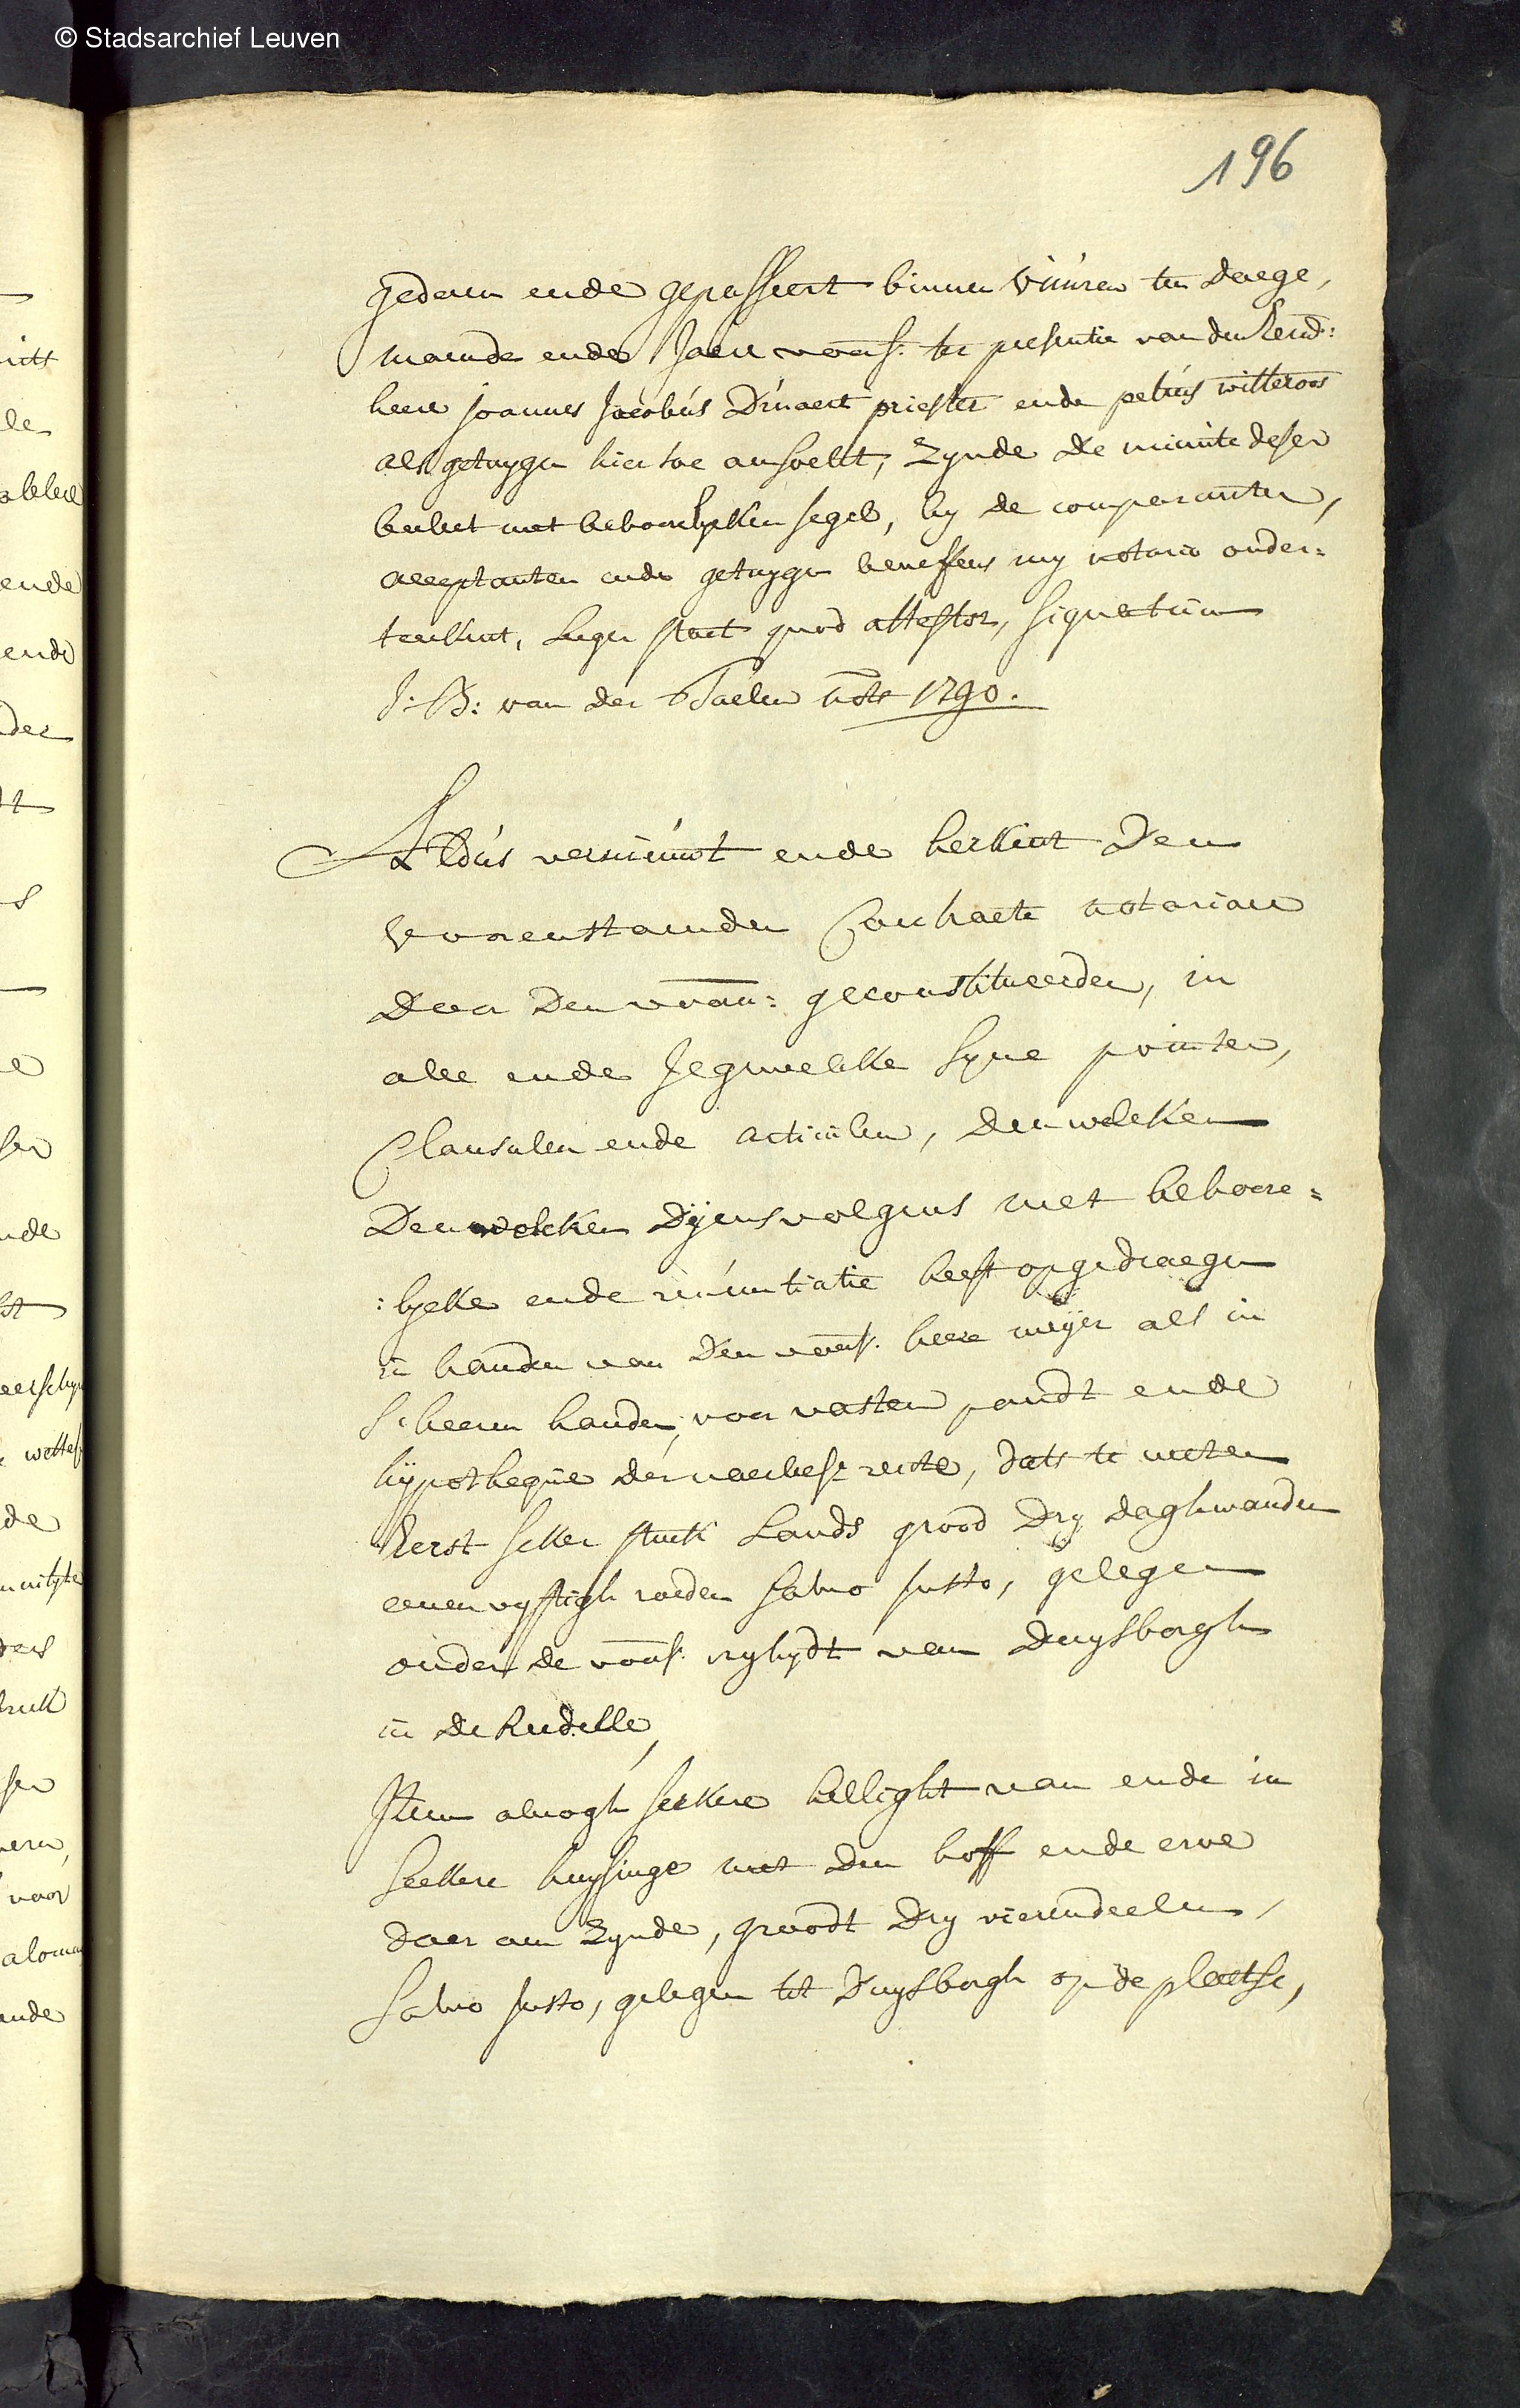 © Stadsarchief Leuven
196
gedaen ende gepasseert binnen Vúúren ten daege,
maende ende Jaere voors: ter presentie van den Eerw:
heere joannes Jacobús Drúaert priester ende petrús witteroos
als getuygen hier toe aensocht, zynde de minúte deser
becleet met behoorelycken segel, by de comparanten,
acceptanten ende getuygen beneffens my notaris onder=
teeckent, Leger staet quod attestor, signatúm
J: B: van der Taelen nots 1790.
Aldús vernieúwt ende herkent den
voorenstaenden Contracte notariael
door den voorn: geconstitueerden, in
alle ende Jegewelcke syne pointen,
Clausulen ende articúlen, den welcken
den welcken dyensvolgens met behoore=
:lycke ende renúntiatie heeft opgedraegen
in handen van den voors. heere meÿer als in
s'heeren handen, voor vasten pandt ende
hÿpotheqúe der naerbes: rente, dats te weten
Eerst seker stuck Lands grood dry daghwanden
eenenvyftigh roeden salvo justo, gelegen
onder de voors. vryhydt van Duysborgh
in de
Item alnogh seekere hellight van ende in
seekere huysinge met den hoff ende erve
daer aen zynde, groodt dry vierendeelen,
salvo justo, gelegen tot Duysborgh op de plaetse,